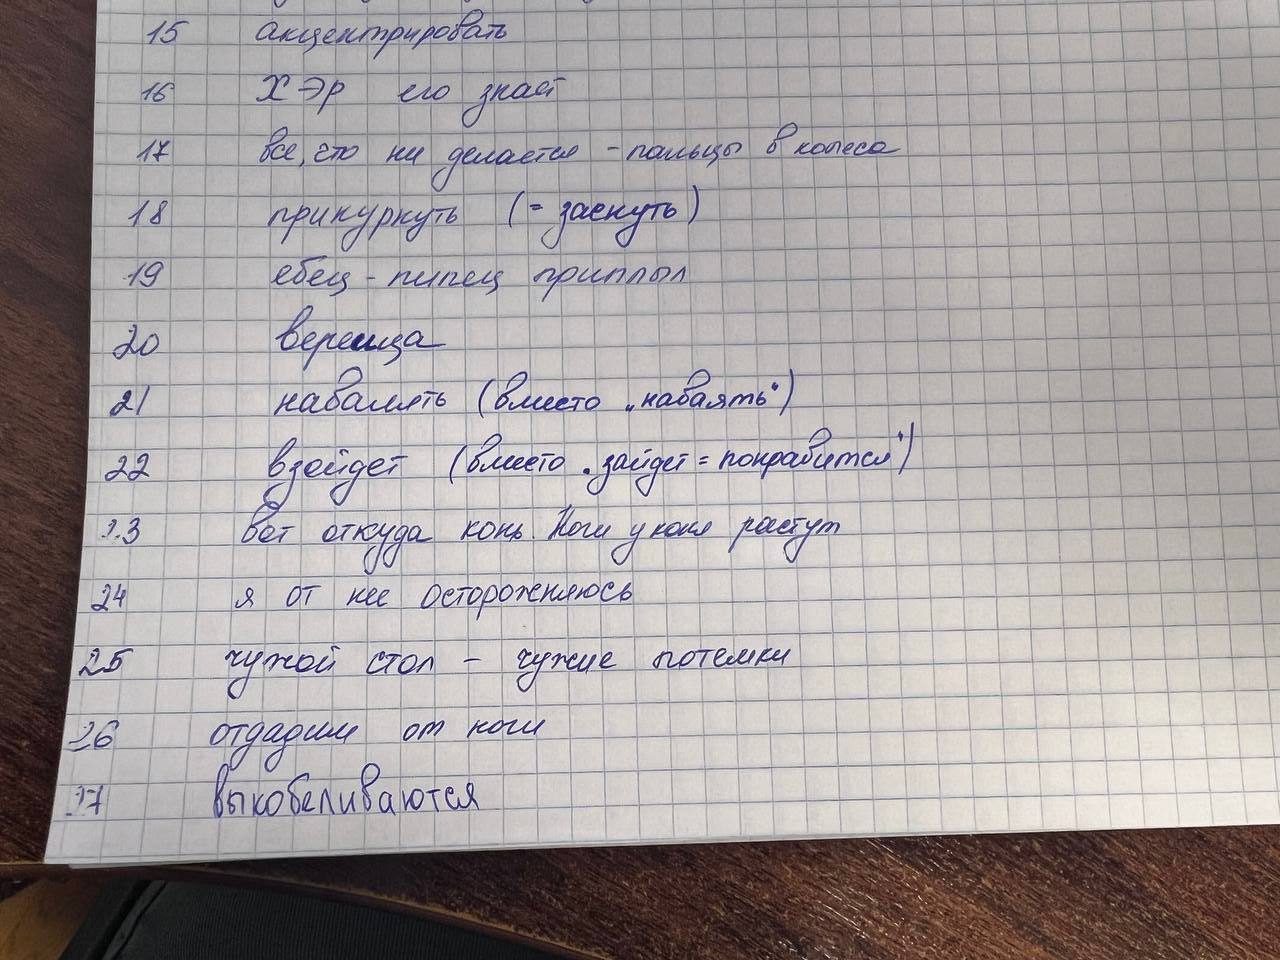 15 акцентрировать
16 Х-Эр его знает
17 все, что ни делается - пальцы в колеса
18 прикуркнуть (= заснуть)
19 ебец - пипец приплыл
20 вереица
21 навалять (вместо „наваять")
22 взойдет (вместо „зайдет = понравится")
23 вот откуда конь. Ноги у коня растут
24 я от нее осторожняюсь
25 чужой стол - чужие потемки
26 отдадим от ноги
27 выкобеливаются